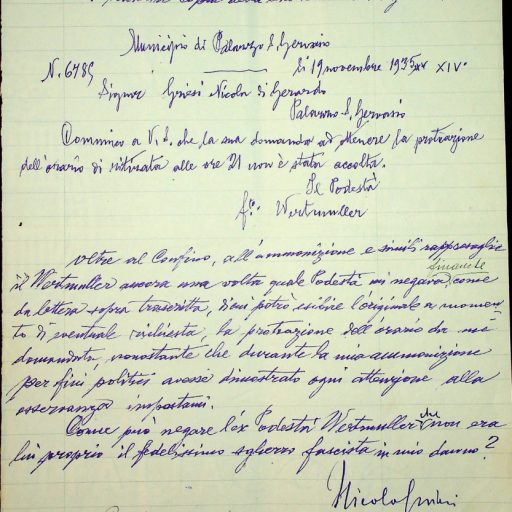 Municipio di Palazzo S. Gervasio
N. 6785 li 19 novembre 1935 XIV°
Signor Griesi Nicola di Gerardo
Palazzo S. Gervasio
Comunico a V. S. che la sua domanda ad ottenere la protrazione
dell'orario di ritirata alle ore 21 non è stata accolta.
Il Podestà
f.° Wertmuller
Oltre al Confino, all'ammonizione e simili rappresaglie
il Wertmuller ancora una volta quale Podestà mi negava, come
da lettera sopra trascritta, di cui potrò esibire l'originale a momen-
to di eventuale richiesta, la protrazione dell'orario da me
domandata, nonostante che durante la mia ammonizione
per fini politici avessi dimostrato ogni attenzione alla
osservanza impostami.
Come può negare l'ex Podestà Wertmuller che non era
lui proprio il fedelissimo sgherro fascista in mio danno?